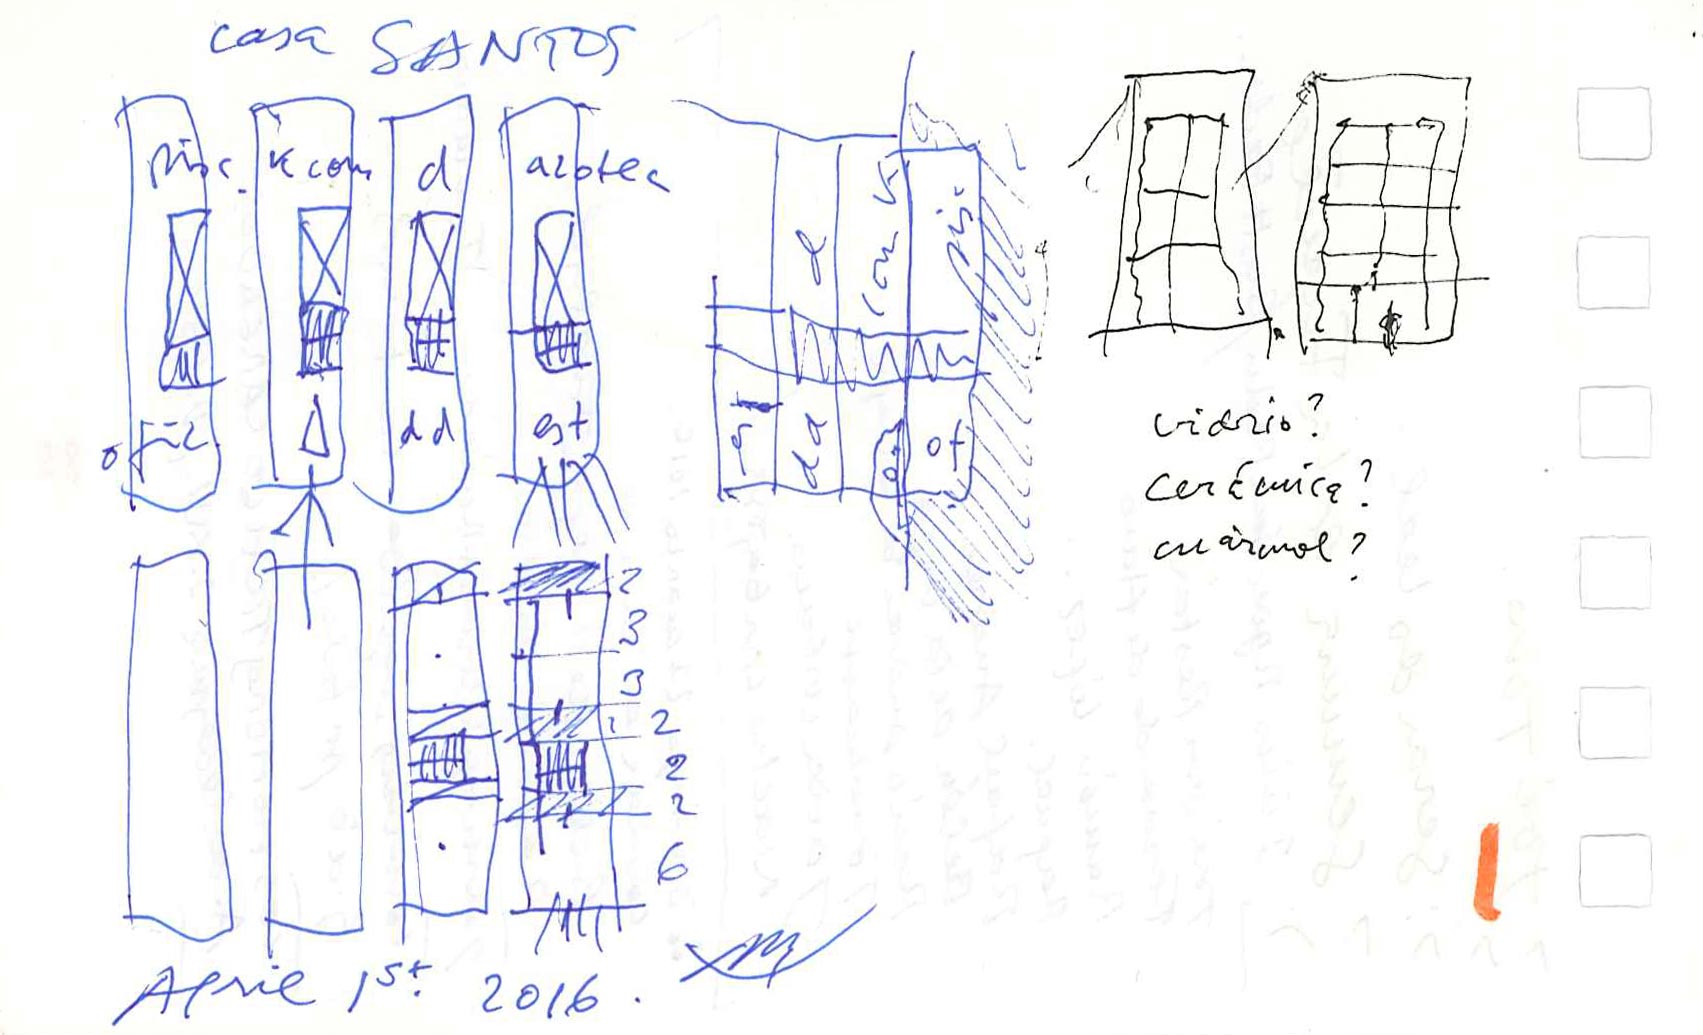 casa SANTOS
pisc. k com d azotea
ofic Δ dd est
d com k pisc
dd of
2
3
3
2
2
2
6
April 1st. 2016.
vidrio?
cerámica?
mármol?